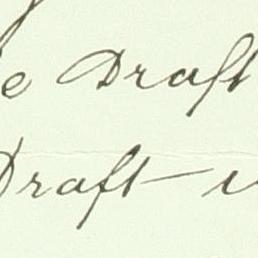 e Draft
Draft —